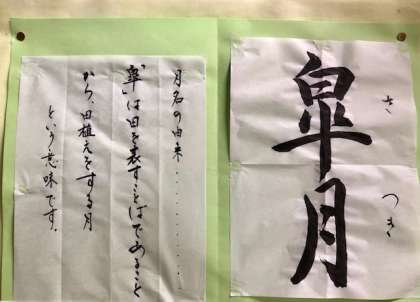 皐月
さつき
月名の由来………
「皐」は田を表すことばであること
から、田植えをする月
という意味です。